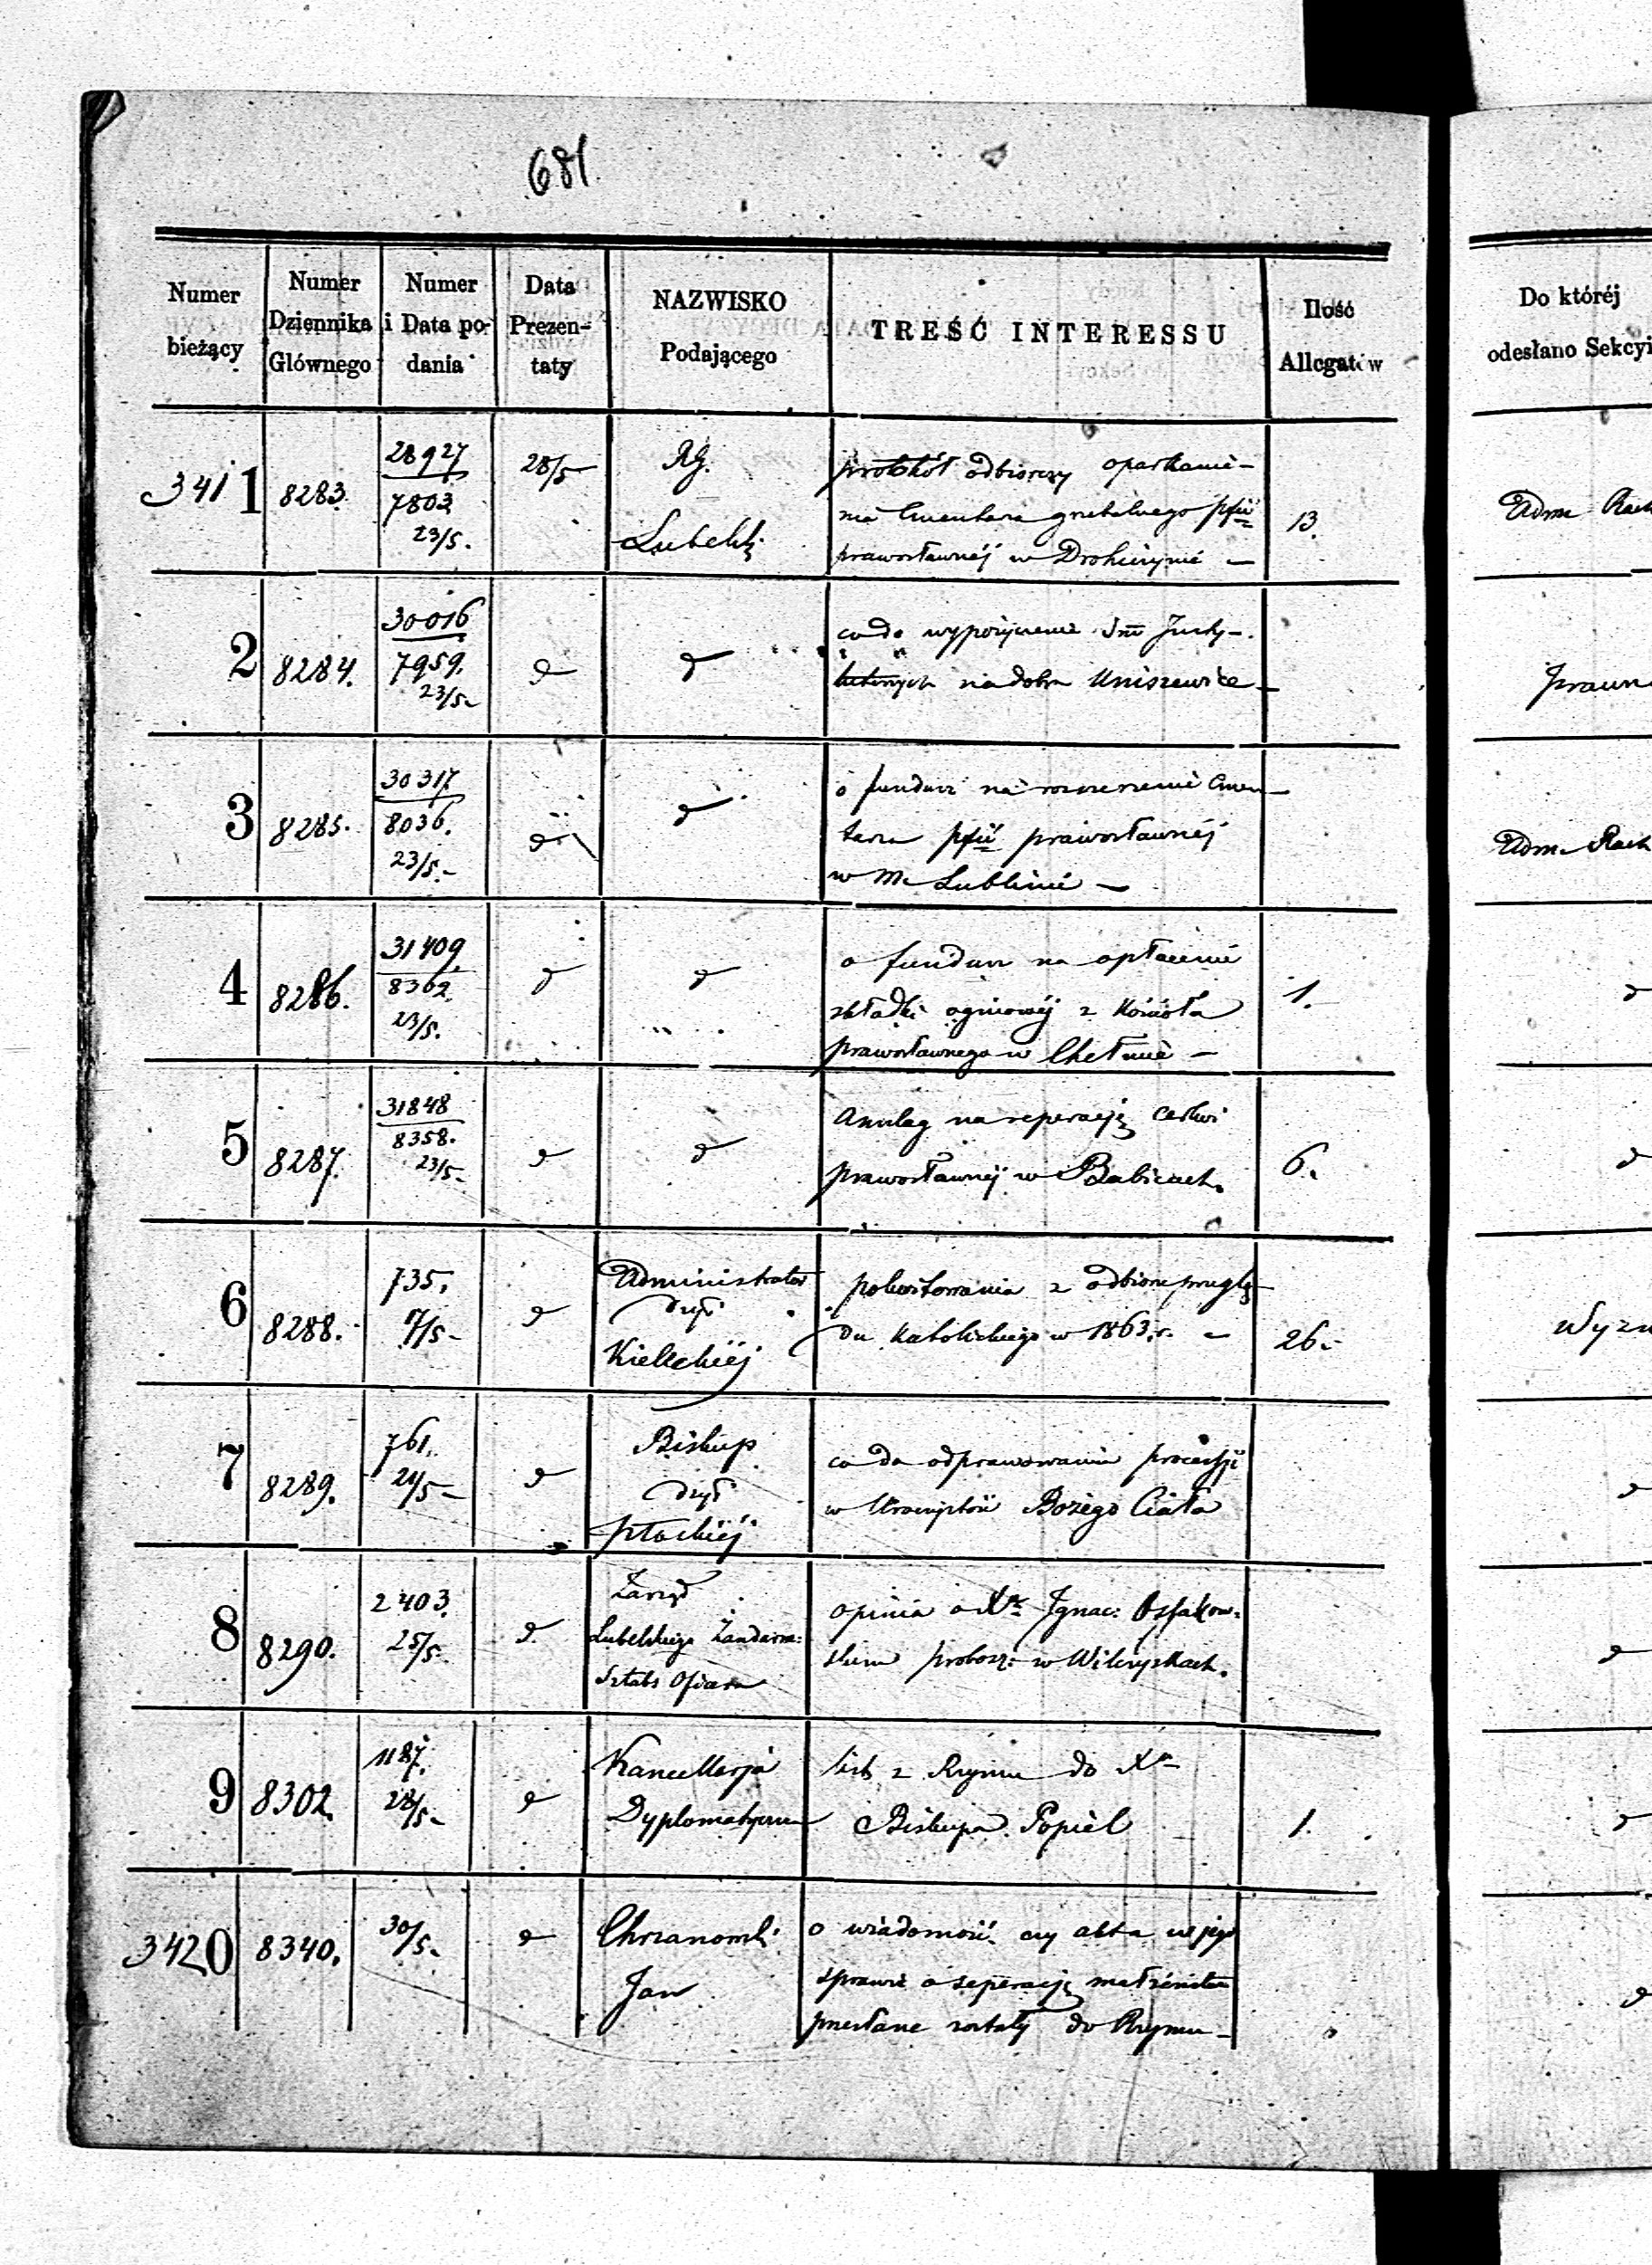 681.
Numer bieżący
Numer Dziennika Głównego
Numer i Data podania
Data Prezentaty
NAZWISKO Podającego
TREŚĆ INTERESSU
Ilość Allegatów
Do któréj odesłano Sekcyi
3411
8283.
28927
7803
23/5.
28/5
RG.
Lubelski
protokół odbiorczy oparkanie-
nia Cmentarza grzebalnego pfii
prawosławnéj w Drohiczynie –
13.
Adm Rach
2
8284.
30016
7959.
23/5
d
d
co do wypożyczenia Sm Insty-
tutowych na dobra Uniszewice
Prawn
3
8285.
30317
8036.
23/5.-
d
d
o fundusz na rozszerzenie Cmen-
tarza pfii prawosławnéj
w M. Lublinie –
Adm. Rach
4
8286.
31409
8362.
23/5.
d
d
o fundusz na opłacenie
składki ogniowéj z Kościoła
prawosławnego w Chełmie –
1.
d
5
8287.
31848
8358.
23/5-
d
d
Anszlag na reperacją cerkwi
prawosławnéj w Babicach.
6.
d
6
8288.
735.
9/5-
d
Administrator
Dyec.
Kieleckiéj
pokwitowania z odbioru przeglą-
du Katolickiego w 1863 r. –
26.-
Wyzn
7
8289.
761.
24/5-
d
Biskup
Dyec.
Płockiéj
co do odprawowania processji
w Uroczystość Bożego Ciała
d
8
8290.
2403.
25/5.
d.
Zarząd
Lubelskiego Żandarm:
Sztabs Oficera
opinia o Xu Ignac:
skim probosz: w Wilczyskach.
d
9
8302.
1187.
28/5-
d
Kancellarja
Dyplomatyczna
list z Rzymu do Xa
Biskupa Popiel
1.
d
3420
8340.
30/5.
d
Chrzanowski
Jan
o wiadomość czy akta w jego
sprawie o seperacją małżeństwa
przesłane zostały do Rzymu –
d